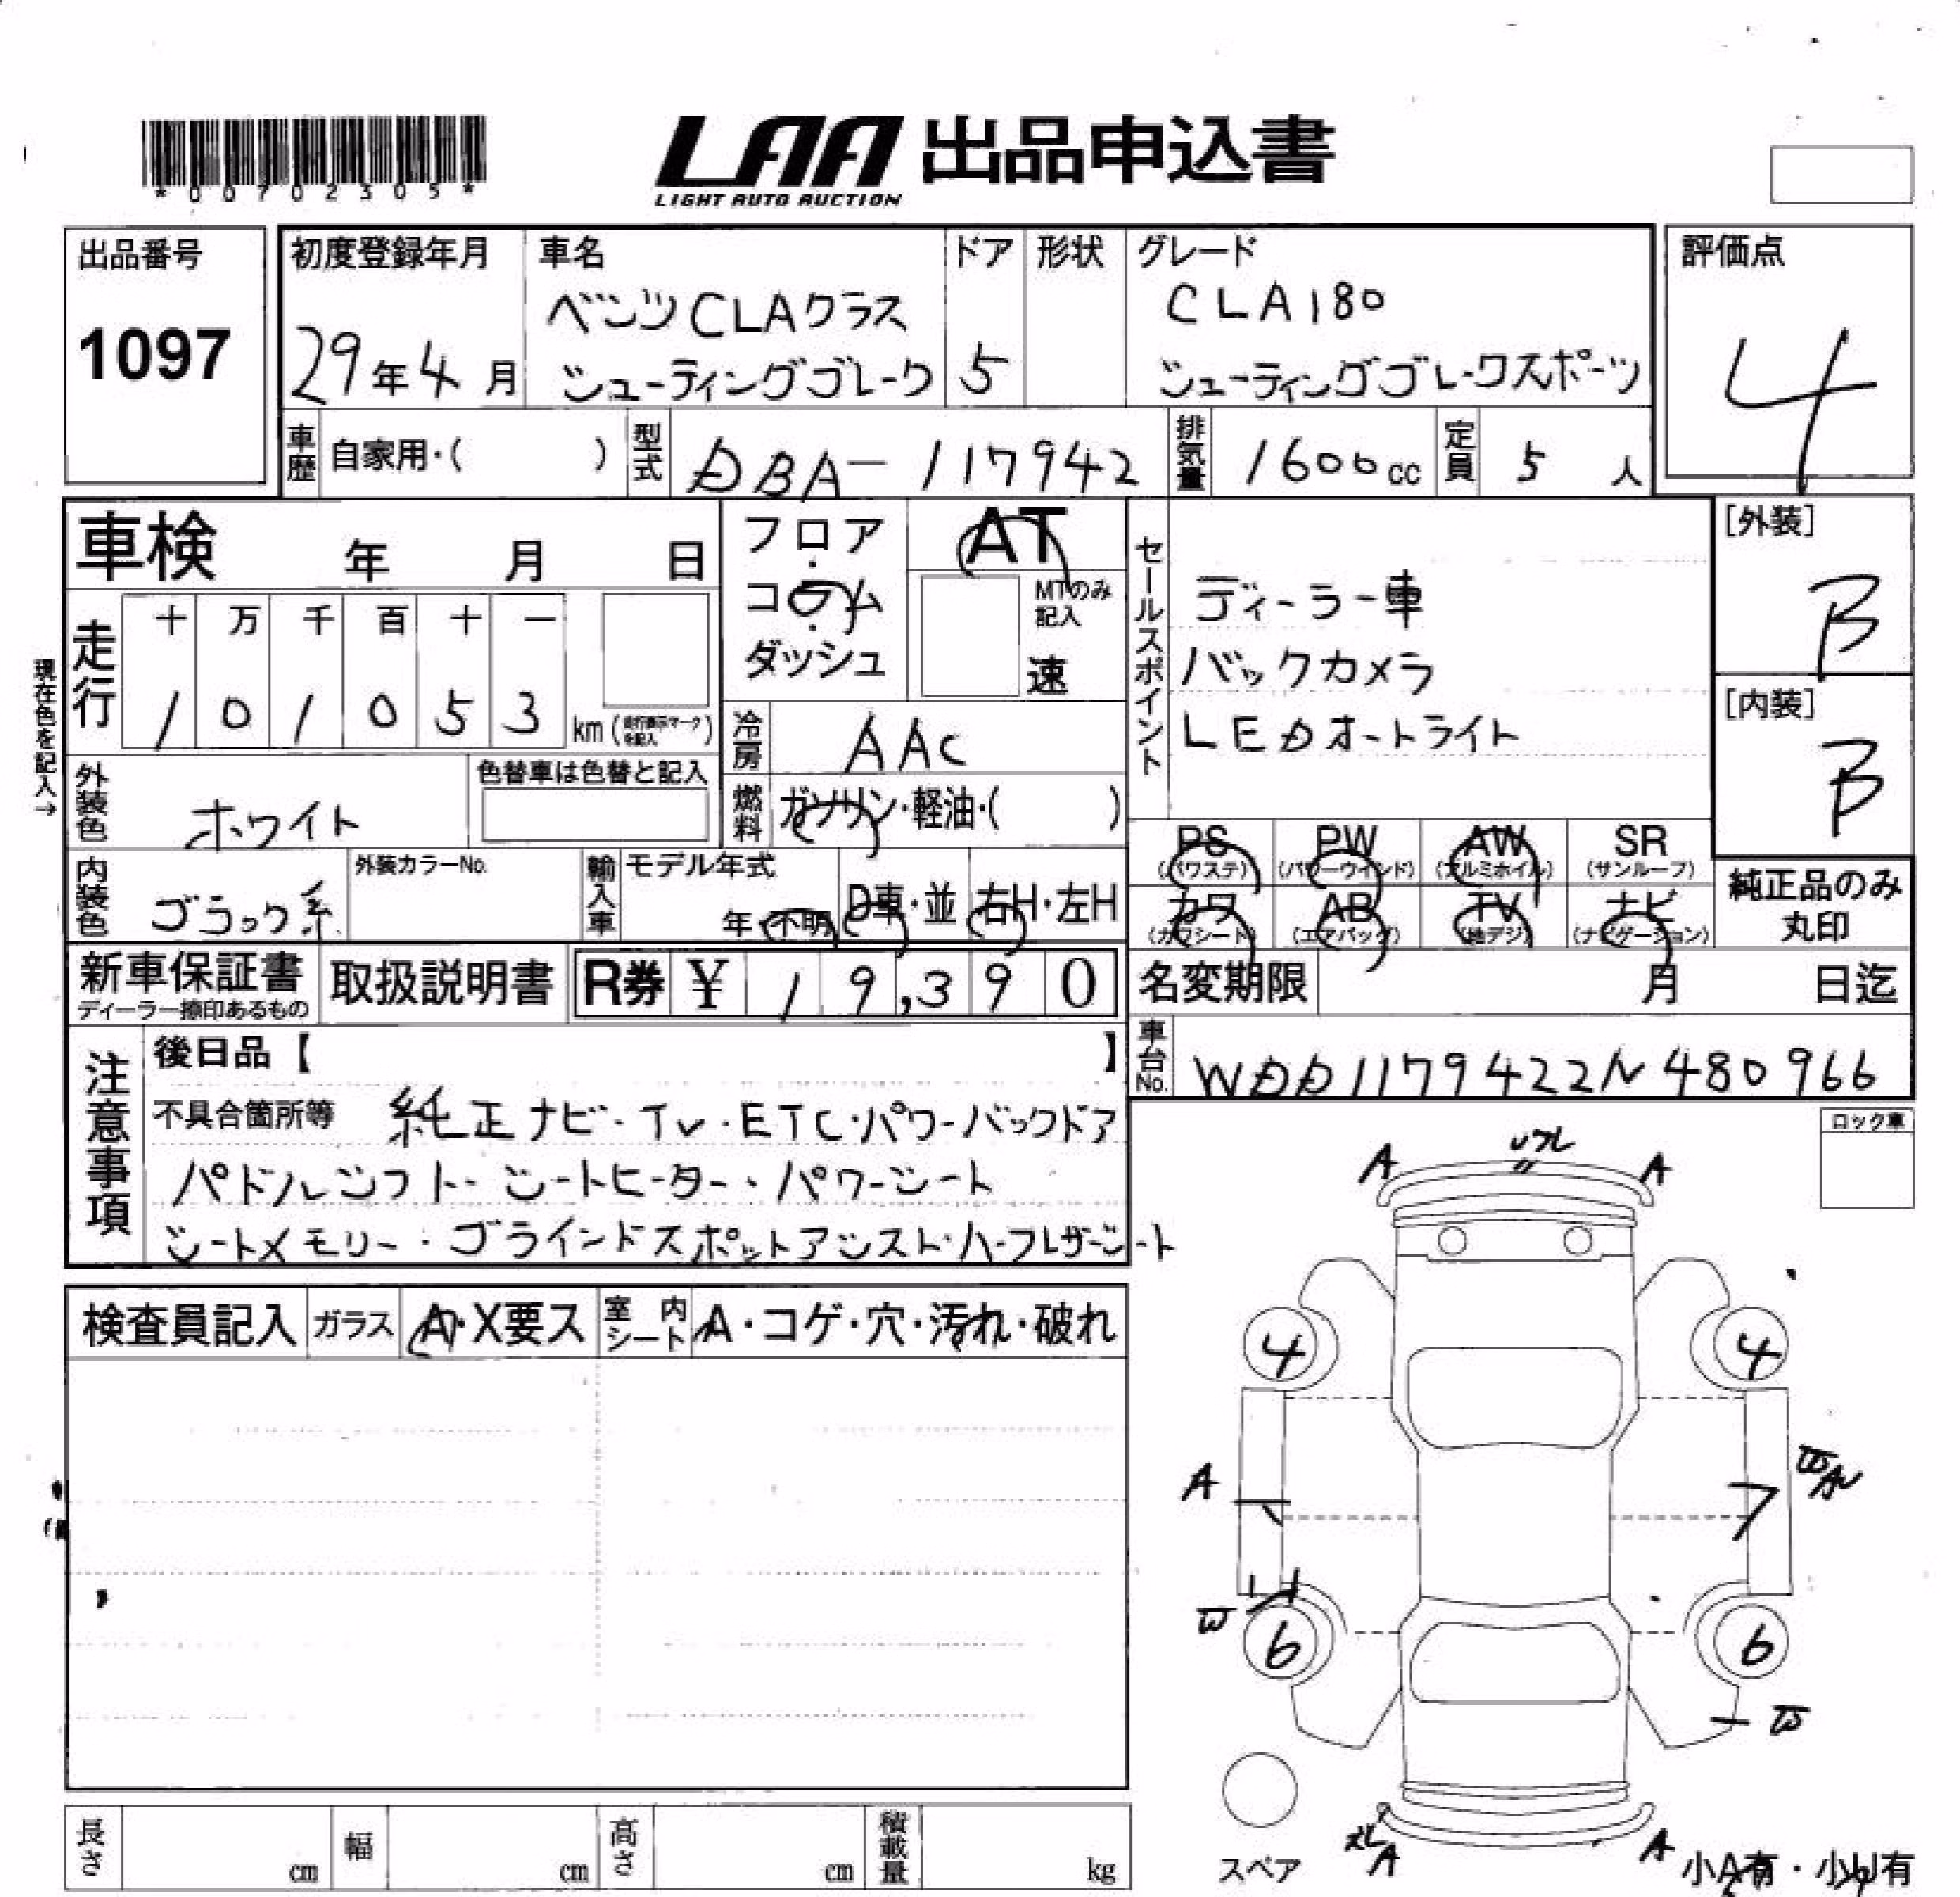 *00702305*
LAA 出品申込書
LIGHT AUTO AUCTION
出品番号
1097
初度登録年月
29年4月
車名
ベンツCLAクラス
シューティングブレーク
ドア
5
形状
グレード
CLA180
シューティングブレークスポーツ
評価点
4
車歴 自家用・( )
型式 DBA-117942
排気量 1600cc
定員 5人
車検 年 月 日
フロア・コラム・ダッシュ
AT
MTのみ記入
速
セールスポイント
ディーラー車
バックカメラ
LEDオートライト
[外装]
B
[内装]
B
現在色を記入→
走行
十 万 千 百 十 一
1 0 1 0 5 3 km (走行表示マークを記入)
冷房 AAC
燃料 ガソリン・軽油・( )
外装色 ホワイト
色替車は色替と記入
内装色 ブラック系
外装カラーNo.
輸入車
モデル年式
年・不明
D車・並
右H・左H
PS (パワステ)
PW (パワーウインド)
AW (アルミホイル)
SR (サンルーフ)
カワ (カワシート)
AB (エアバッグ)
TV (地デジ)
ナビ (ナビゲーション)
純正品のみ丸印
新車保証書
ディーラー捺印あるもの
取扱説明書
R券 ¥ 19,390
名変期限 月 日迄
車台No. WDD1179422N480966
注意事項
後日品【 】
不具合箇所等 純正ナビ・TV・ETC・パワーバックドア
パドルシフト・シートヒーター・パワーシート
シートメモリー・ブラインドスポットアシスト・ハーフレザーシート
ロック車
検査員記入
ガラス A・X要ス
室内シート A・コゲ・穴・汚れ・破れ
A
A
4
4
A
W
W
6
6
W
A
A
スペア
小A有・小U有
長さ cm
幅 cm
高さ cm
積載量 kg